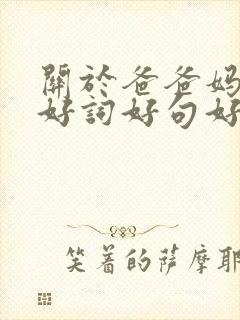 關於爸爸媽
好詞好句好
笑着的薩摩耶